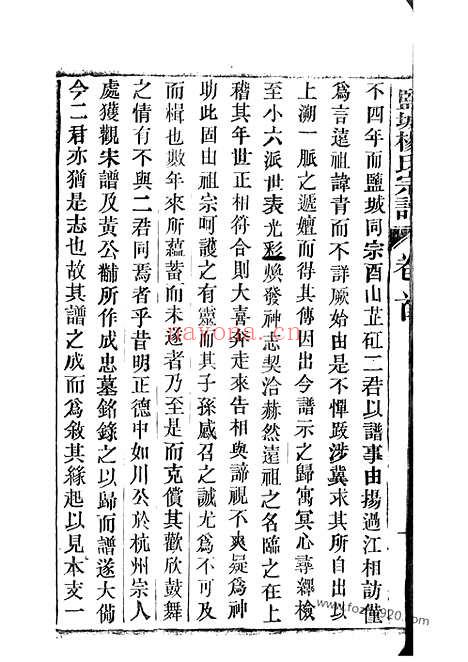 鹽城楊氏宗譜 卷首
不四年而鹽城同宗酉山芷矼二君以譜事由揚過江相訪僅
爲言遠祖諱青而不詳厥始由是不憚跋涉冀求其所自出以
上溯一脈之遞嬗而得其傳因出今譜示之歸寓冥心尋繹檢
至小六派世表光彩煥發神志契洽赫然遠祖之名臨之在上
稽其年世正相符合則大喜奔走來告相與諦視不爽疑爲神
助此固山祖宗呵護之有靈而其子孫感召之誠尤爲不可及
而楫也數年來所蘊蓄而未遂者乃至是而克償其歡欣鼓舞
之情有不與二君同焉者乎昔明正德中如川公於杭州宗人
處獲觀宋譜及黃公黼所作成忠墓銘錄之以歸而譜遂大備
今二君亦猶是志也故其譜之成而爲敘其緣起以見本支一
yayona.cn
www.foz1920.com